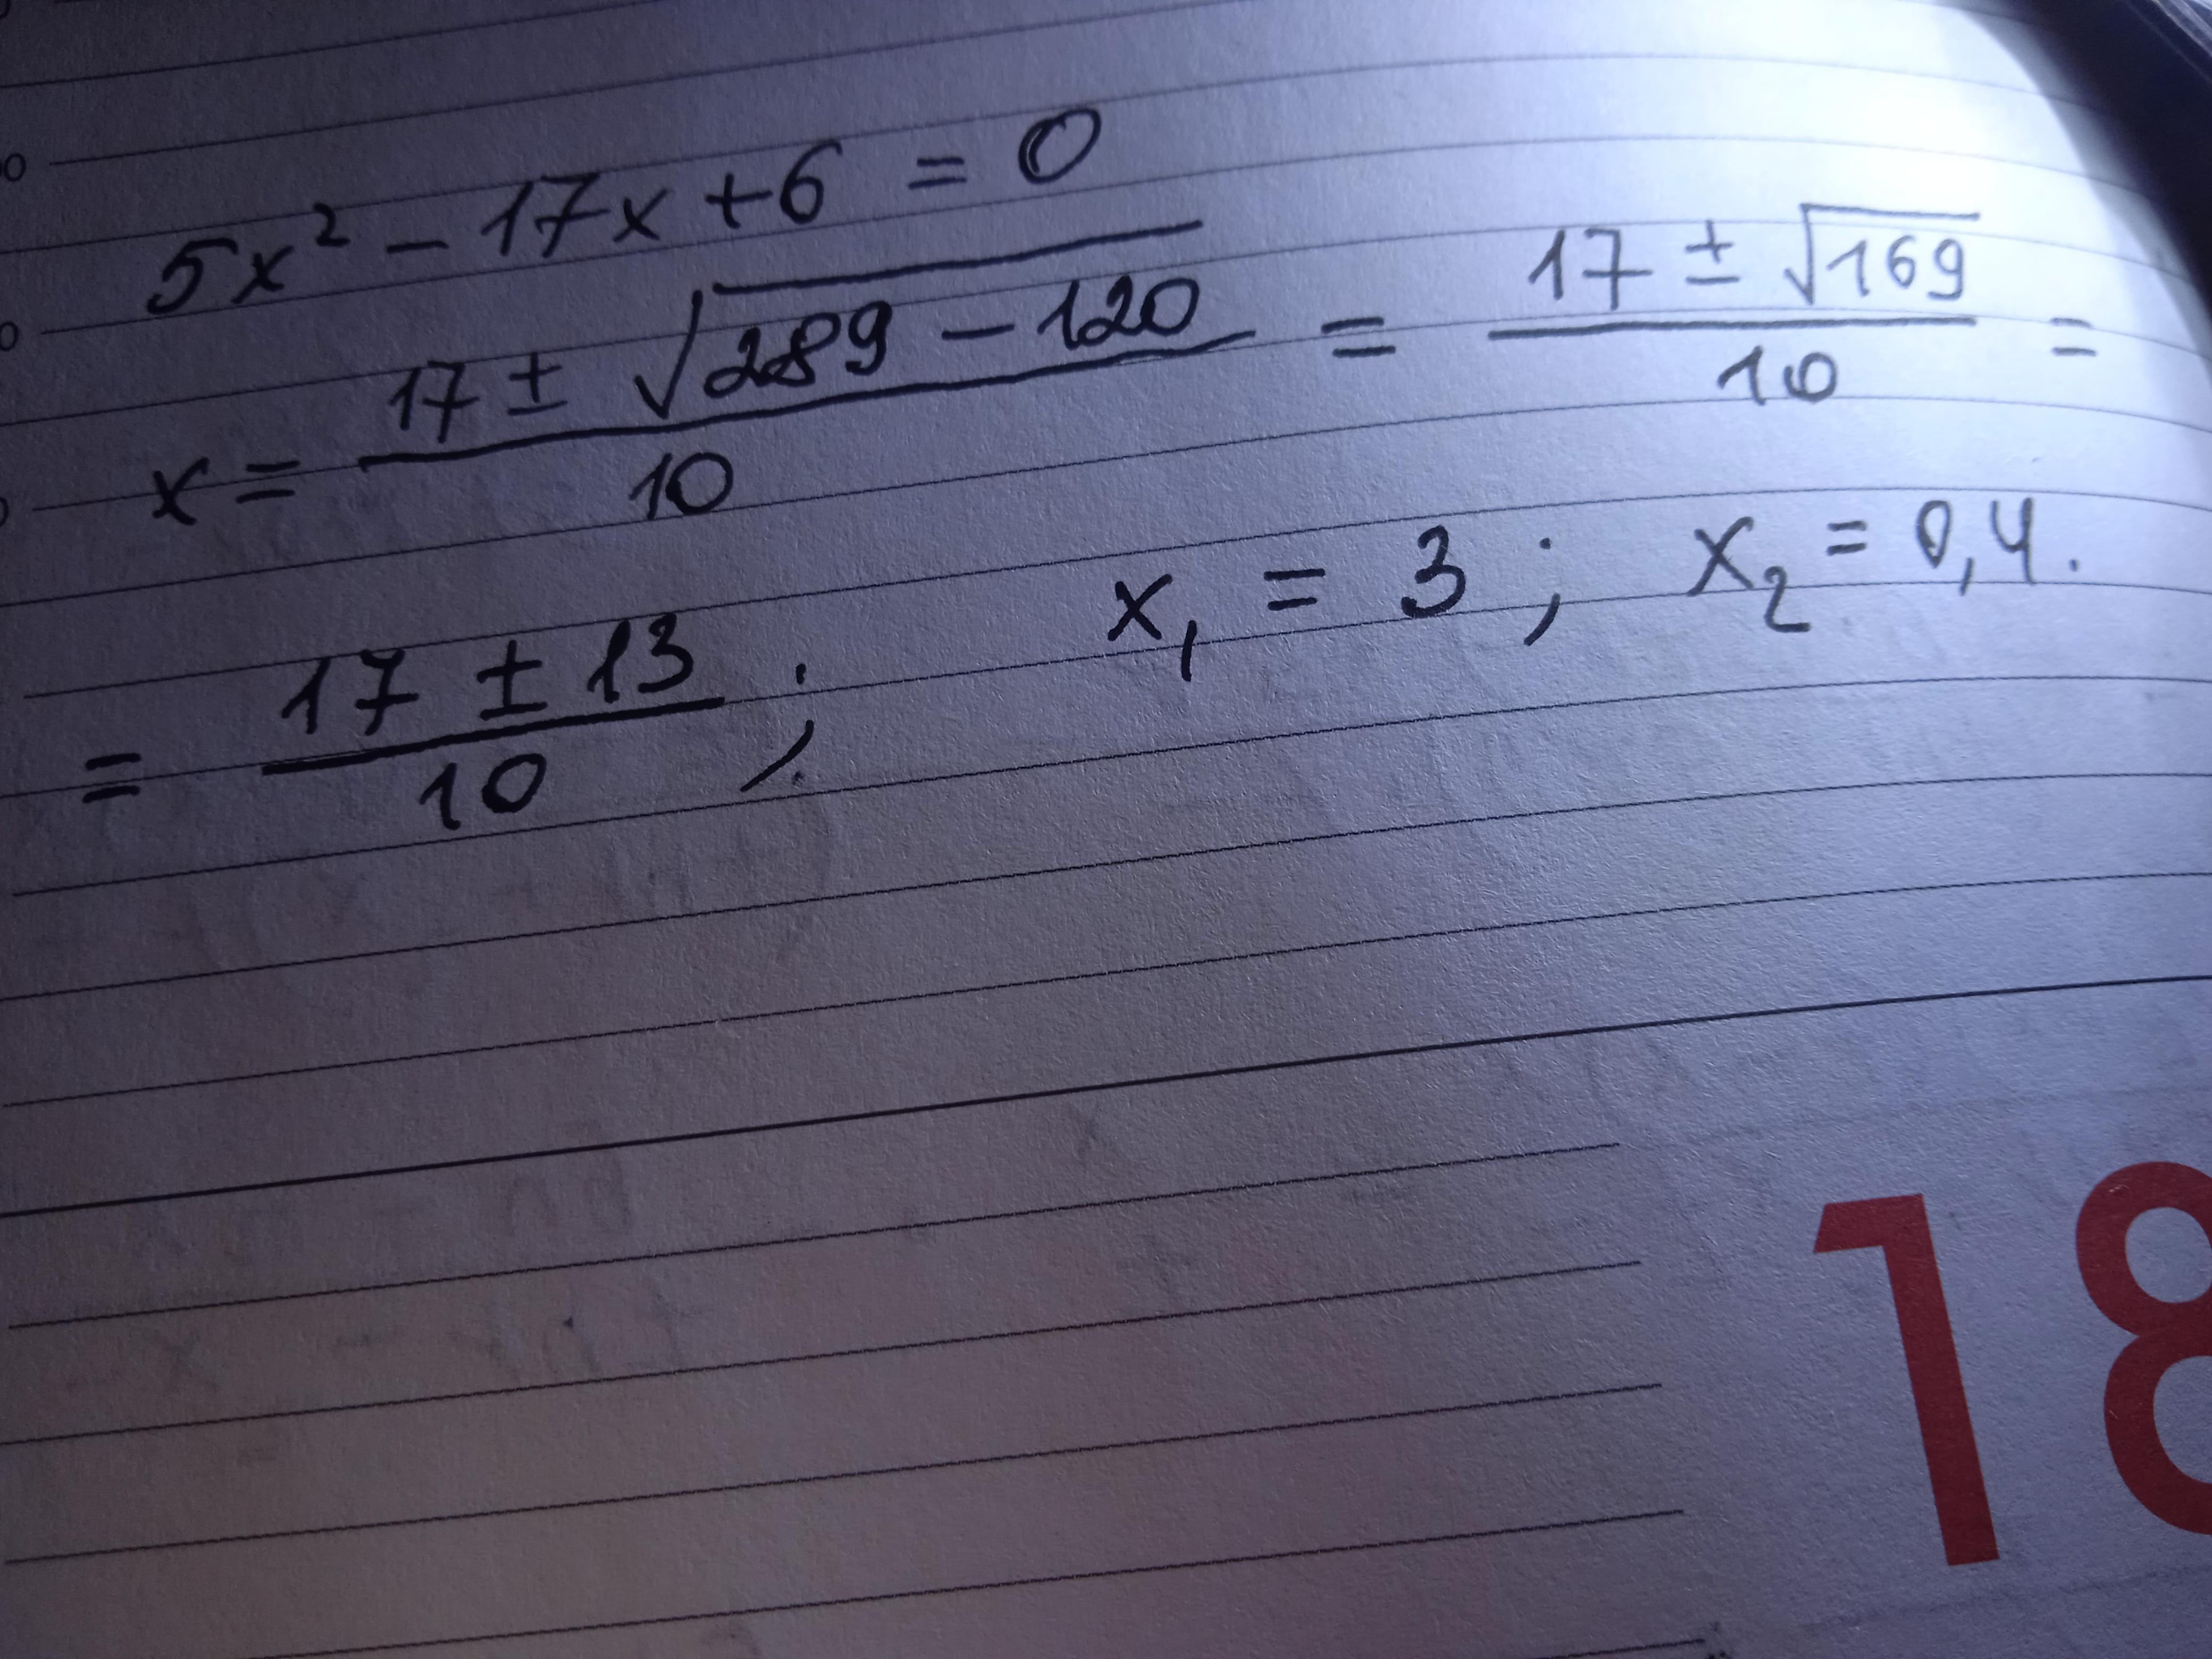 5x² - 17x + 6 = 0
x = (17 ± √(289 - 120))/10 = (17 ± √169)/10 =
= (17 ± 13)/10 ; x₁ = 3 ; x₂ = 0,4.
18